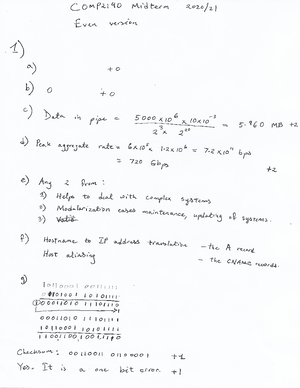 COMP2190 Midterm 2020/21
Even version
1)
a) +0
b) 0 +0
c) Data in pipe = 5000 x 10^6 x 10 x 10^-3 / 2^3 x 2^20 = 5.960 MB +2
d) Peak aggregate rate = 6x10^5 x 1.2x10^6 = 7.2x10^11 bps
= 720 Gbps +2
e) Any 2 from:
1) Helps to deal with complex systems
2) Modularization eases maintenance, updating of systems.
3)
f) Hostname to IP address translation – the A record
Host aliasing – the CNAME records.
g)
00011010 11110111
00011011 01010111
10110001 10101110
11001100 10010111
Checksum: 00110011 01101000 +1
Yes. It is a one bit error. +1